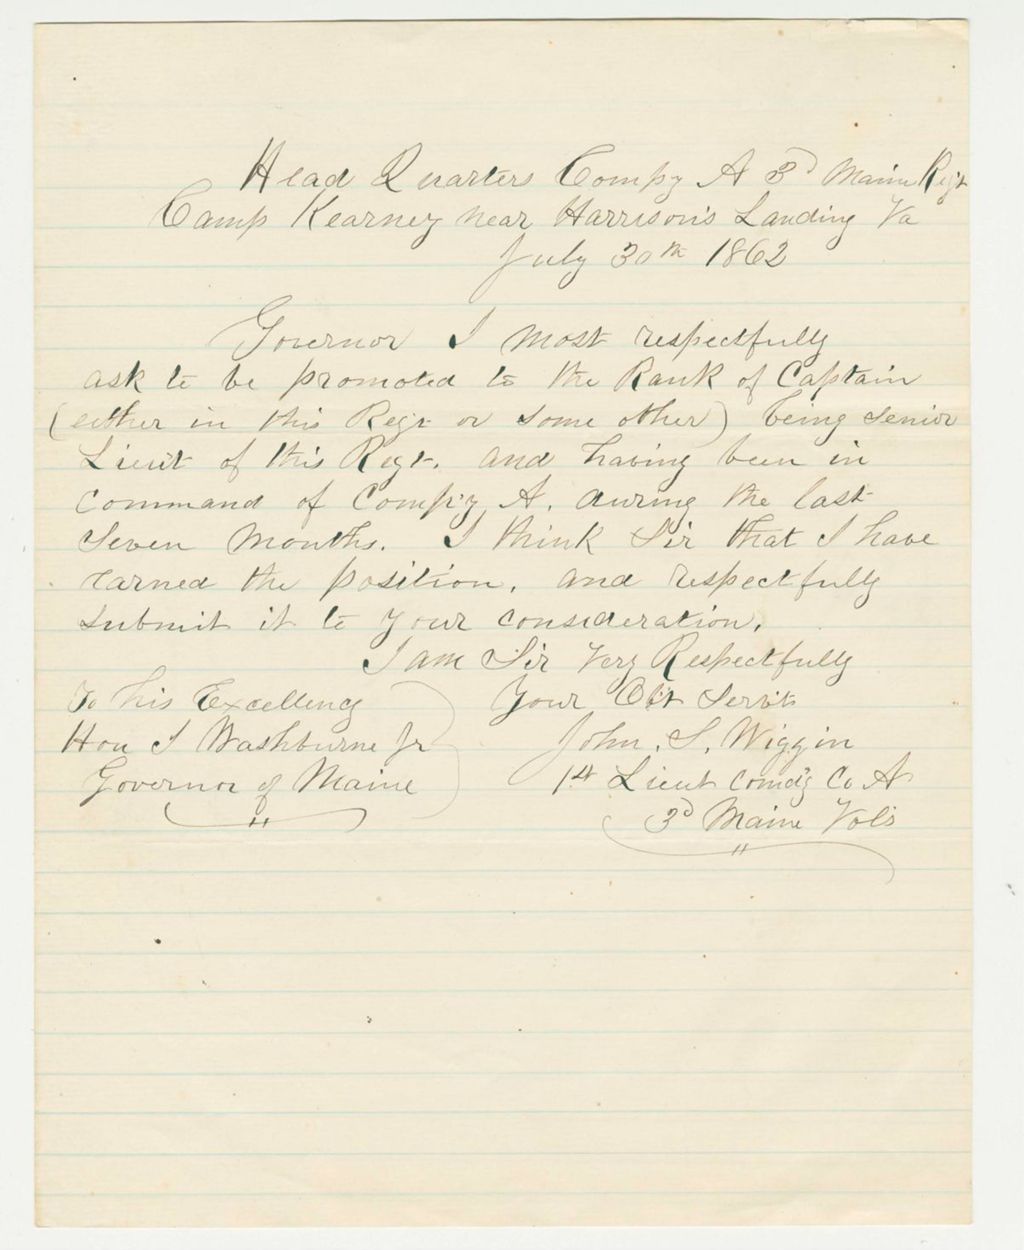 Head Quarters Compy A 3d Maine Regt
Camp Kearney near Harrison's Landing Va
July 30th 1862
Governor I most respectfully
ask to be promoted to the Rank of Captain
(either in this Regt or some other) being senior
Lieut of this Regt. and having been in
command of Comp'y A. during the last
Seven Months. I think Sir that I have
earned the position, and respectfully
submit it to your consideration.
I am Sir Very Respectfully
Your Obt Servt
John. S. Wiggin
1st Lieut Comd'g Co A
3d Maine Vols
To his Excellency
Hon I Washburne Jr
Governor of Maine